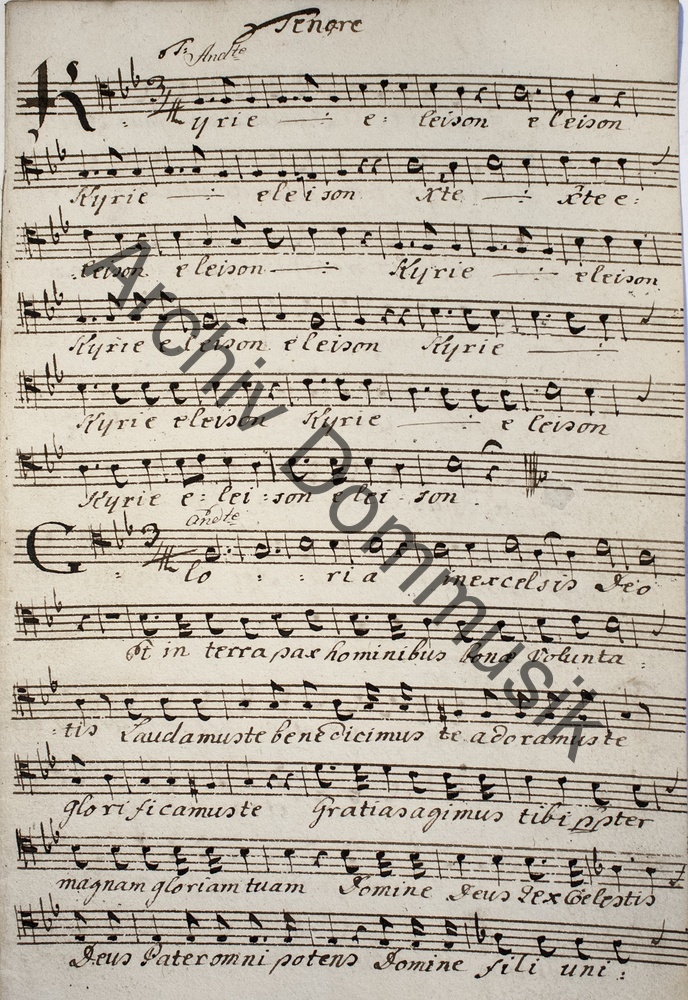 Tenore
And:te
Kyrie e: leison eleison
Kyrie eleison Xte Xte e:
leison eleison Kyrie eleison
Kyrie eleison eleison Kyrie
Kyrie eleison Kyrie eleison
Kyrie e: lei: son elei son
And:te
Glo: : : ria in excelsis Deo
Et in terra pax hominibus bonæ volunta:
:tis Laudamus te benedicimus te adoramus te
glorificamus te Gratias agimus tibi ppter
magnam gloriam tuam Domine Deus Rex Cœlestis
Deus Pater omnipotens Domine fili uni:
Archiv Dommusik